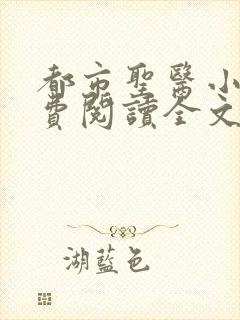 都市聖醫小
費閱讀全文
湖藍色